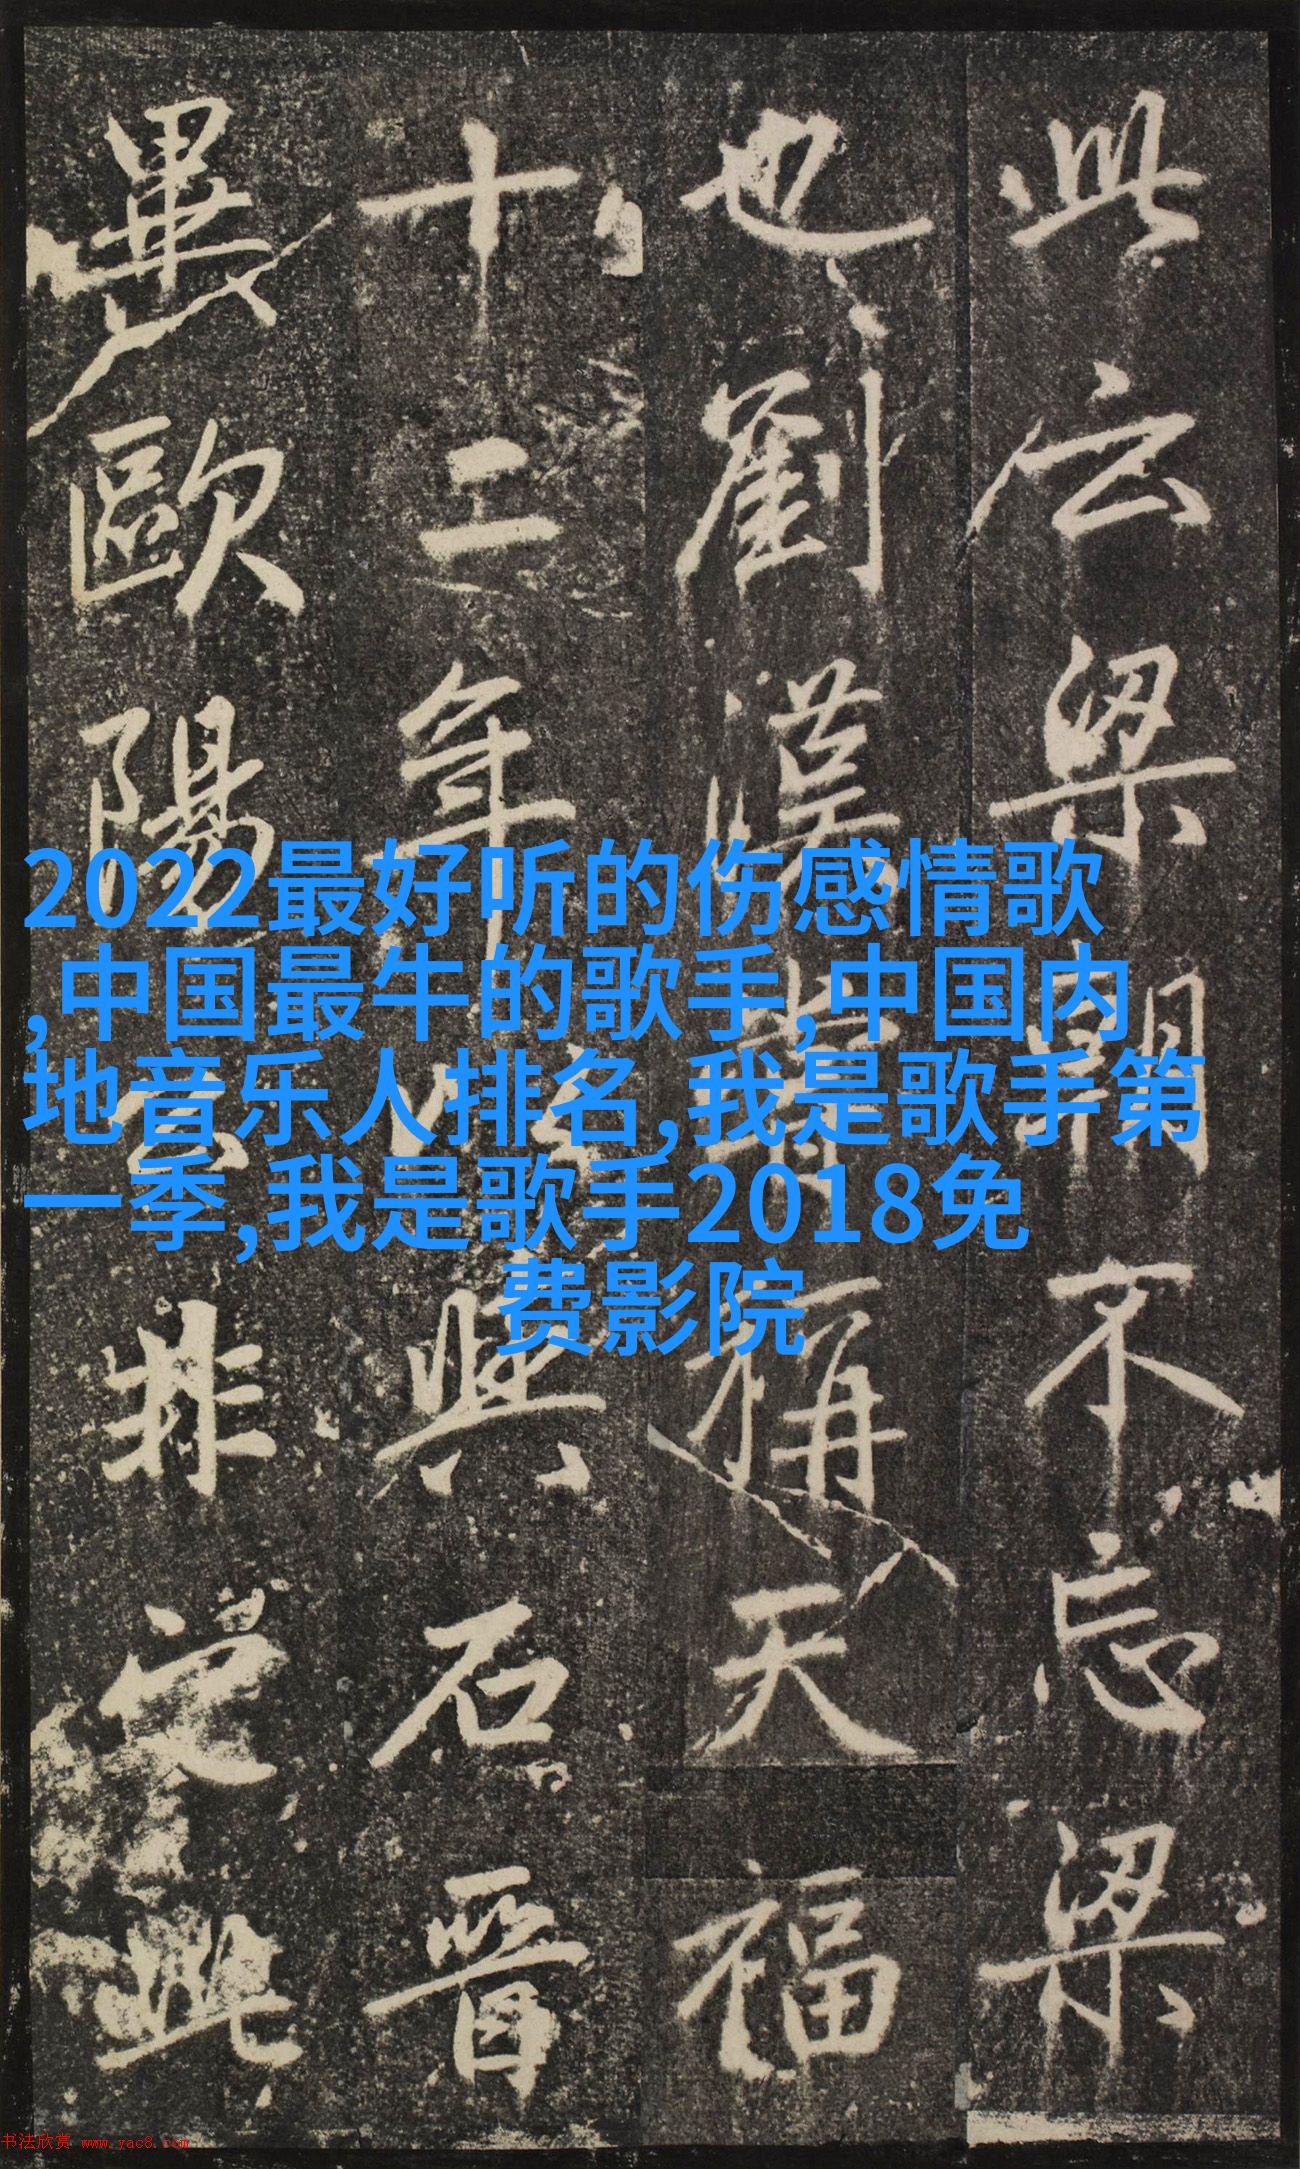 此云梁朝不忘梁
也劉漢稱天福
十二年以與石晉
畢歐陽公非此
2022最好听的伤感情歌
,中国最牛的歌手,中国内
地音乐人排名,我是歌手第
一季,我是歌手2018免
费影院
书法欣赏 www.yac8.com